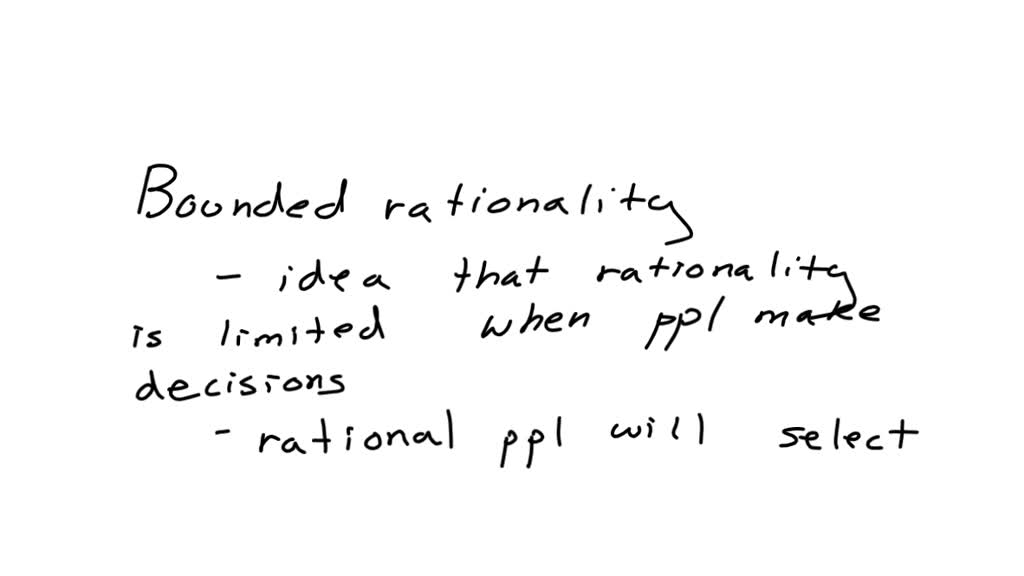 Bounded rationality
- idea that rationality
is limited when ppl make
decisions
- rational ppl will select